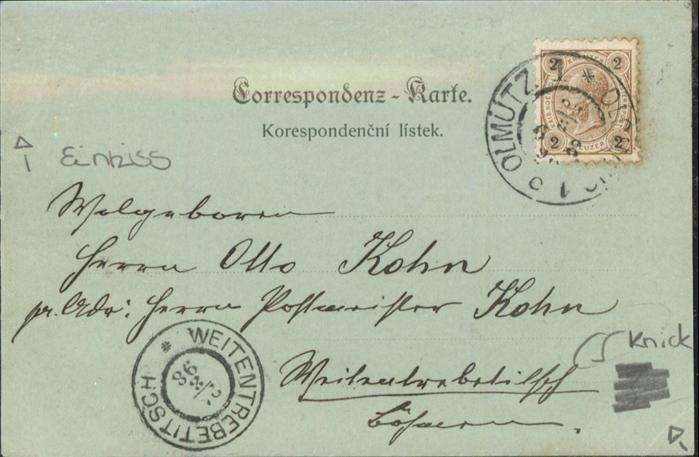 Correspondenz-Karte.
Korespondenční lístek.
2 2
2 2
KREUZER
OLMÜTZ 1
Einriss
Wolgeboren
Herrn Otto Kohn
pr. Adr: Herrn Postmeister Kohn
Knick
WEITENTREBETITSCH
98
Weitentrebetitsch
Böhmen.